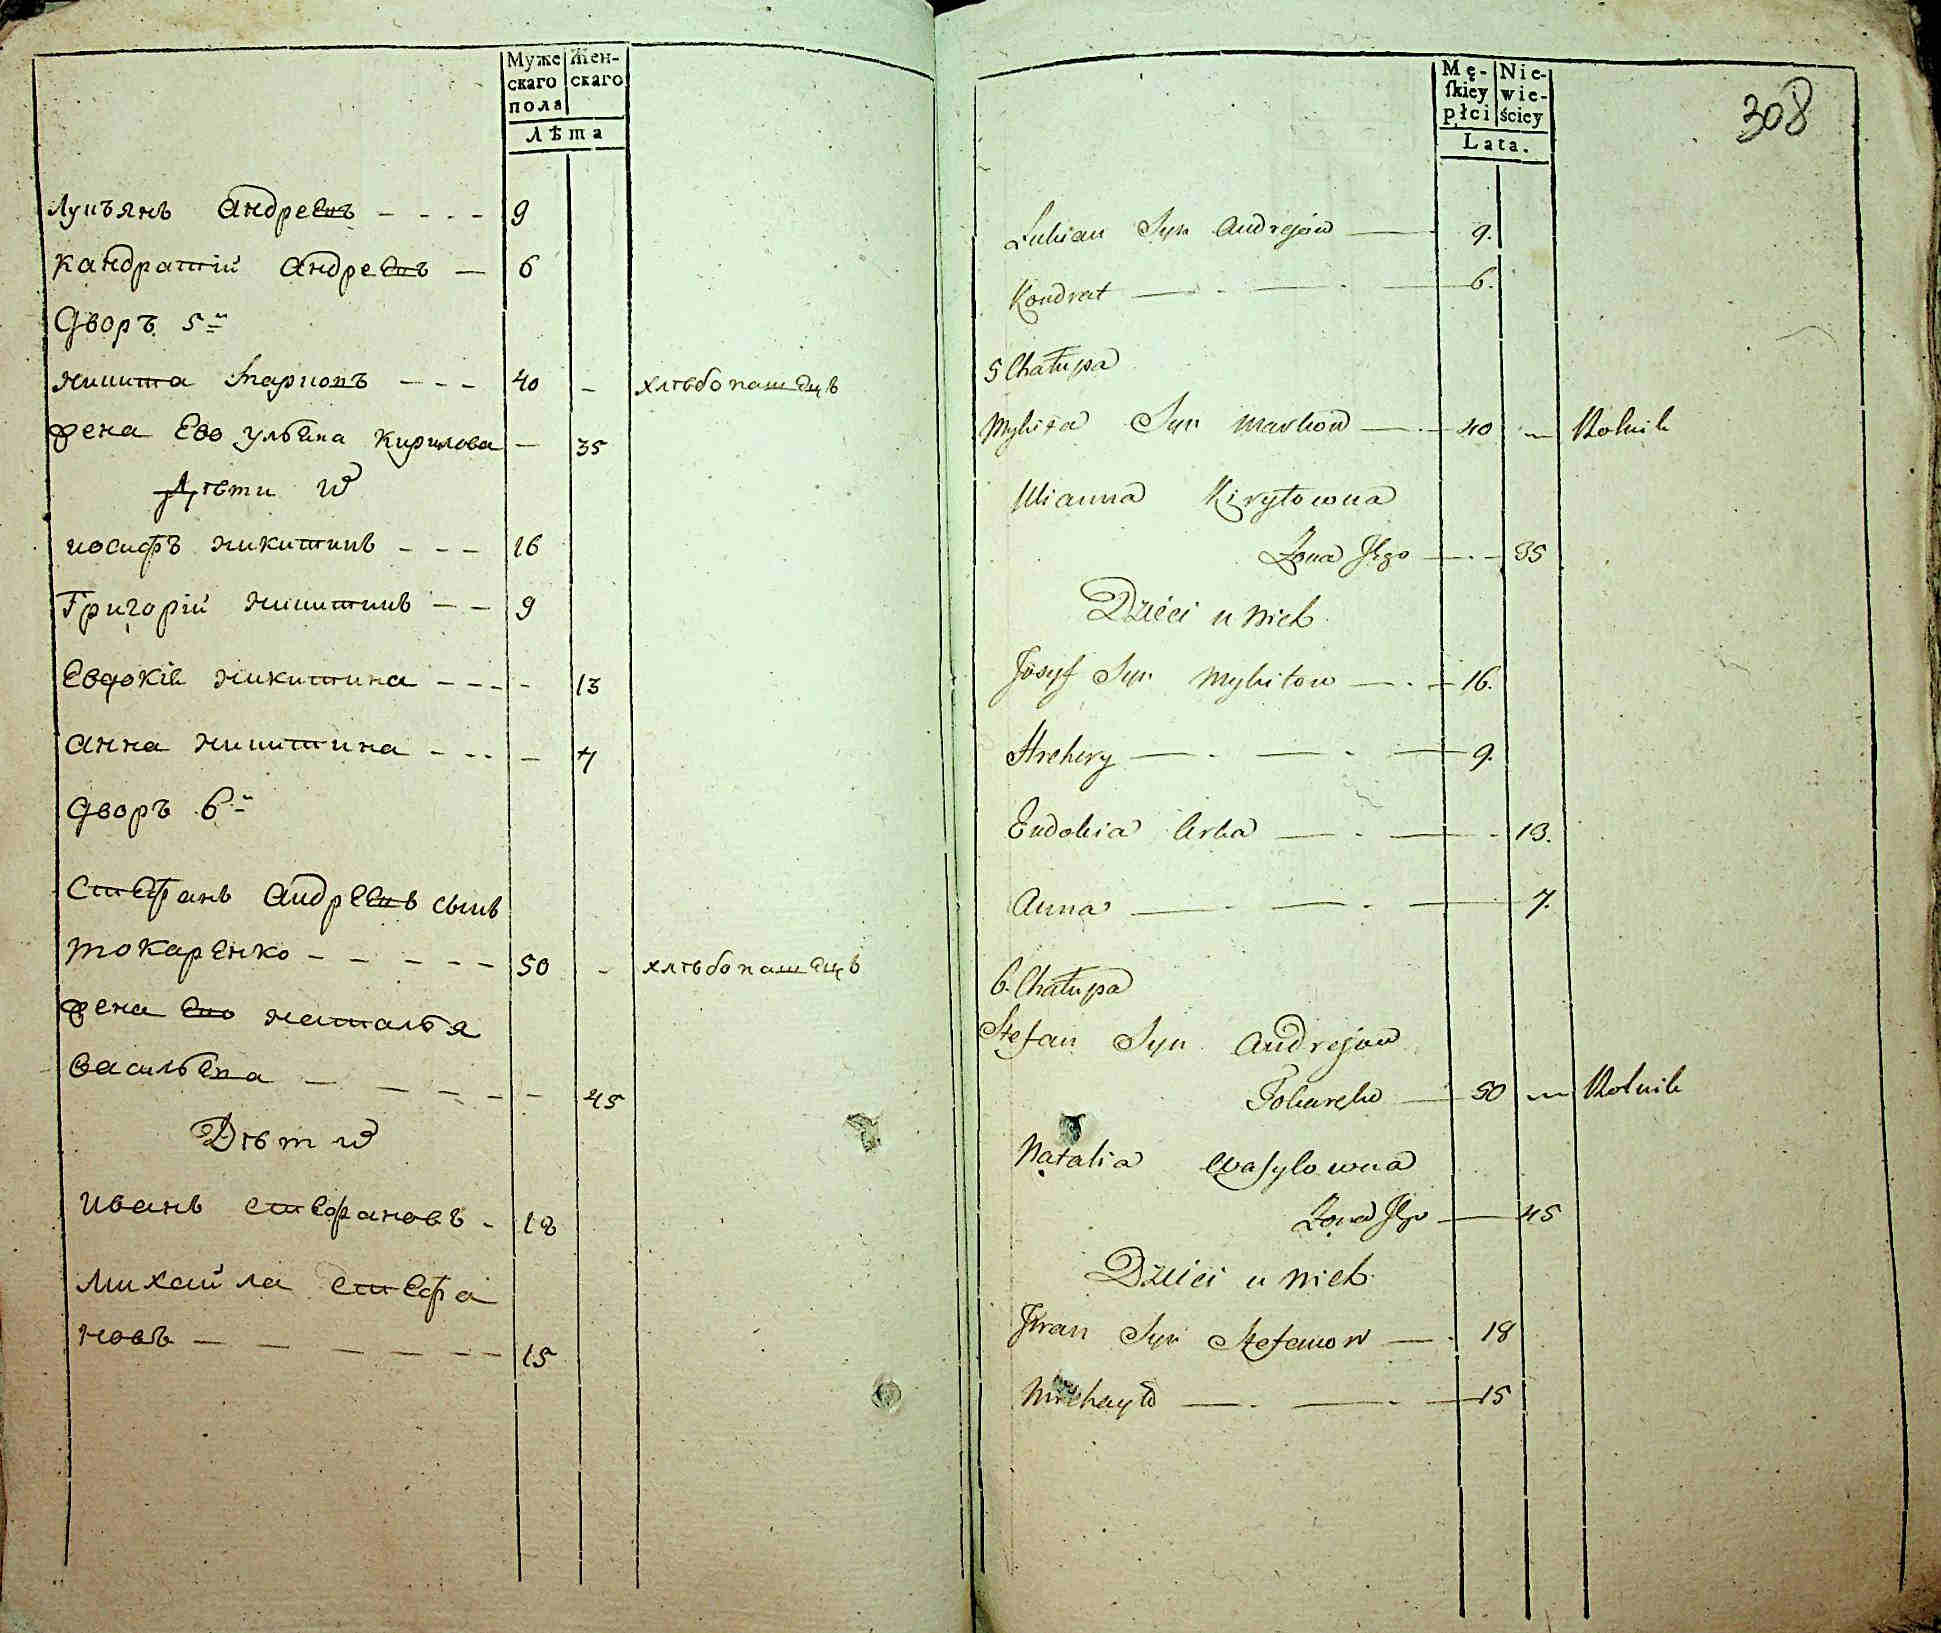 Муже
скаго
пола
Жен-
скаго
Лѣта
Лукъянъ Андреевъ - - - - 9
Кандратiй Андреевъ — 6
Дворъ 5й
Никита Марковъ - - - 40 - хлѣбопашецъ
жена Его Ульяна Кирилова - 35
Дѣти
иосифъ Никитинъ - - - 16
Григорiй Никитинъ - - 9
Евдокiя Никитина - - - - 13
Анна Никитина - - - - 7
Дворъ 6й
Стефанъ Андреевъ сынъ
Токаренко - - - - - 50 - хлѣбопашецъ
жена Его Наталья
Васильева - - - - - 45
Дѣти
Иванъ Стефановъ - 18
Михайла Стефа
новъ - - - - - - 15
308
Mę-
skiey
płci
Nie-
wie-
ściey
Lata.
Łukian Syn Andrejów — 9.
Kondrat — . — . — 6.
5 Chałupa
Mykita Syn Markow — . — 40 — Rolnik
Ulianna Kiryłowna
Żona Jego — . — 35
Dzieci u Nich
Josyf Syn Mykitow — . — 16.
Hrehory — . — . — 9.
Eudokia Curka — . — . 13.
Anna — . — . — 7.
6. Chałupa
Stefan Syn Andrejow
Tokareńko — 50 — Rolnik
Natalia Wasylowna
Żona Jego — 45
Dzieci u Nich
Iwan Syn Stefanow — . 18
Michayło — . — . — 15